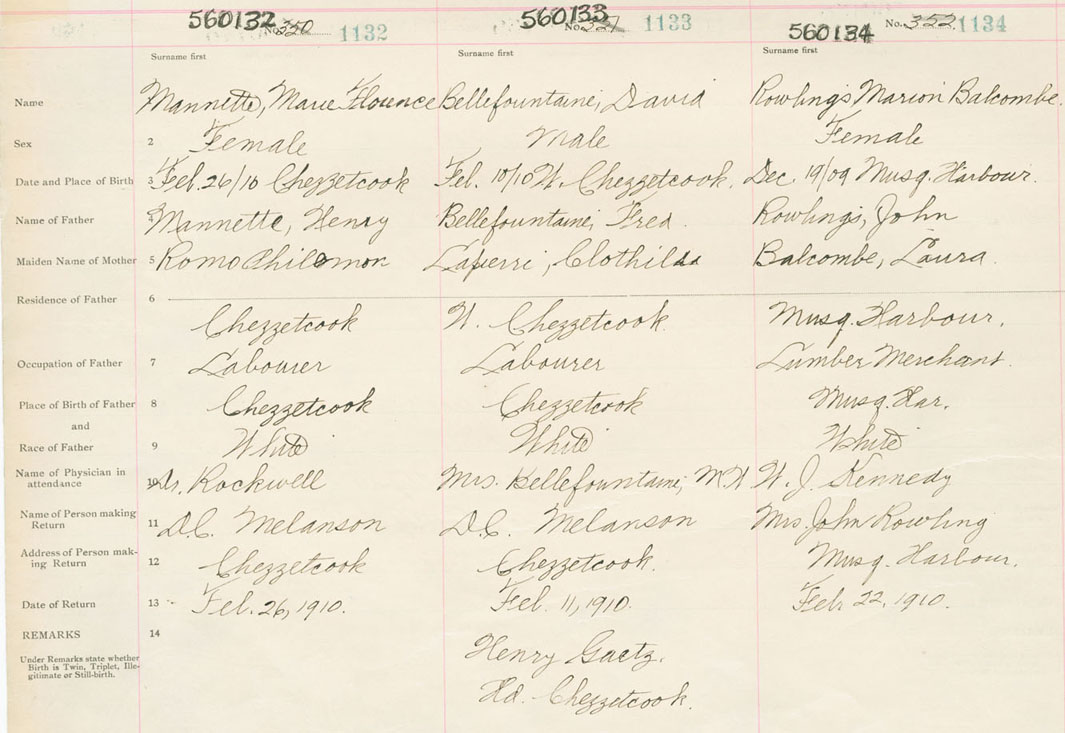 560132 560133 560134
No. 350 1132 No. 351 1133 No. 352 1134
Surname first Surname first Surname first
Name Mannette, Marie Florence Bellefountaine, David Rowlings Marion Balcombe.
Sex 2 Female Male Female
Date and Place of Birth 3 Feb. 26/10 Chezzetcook Feb. 10/10 W. Chezzetcook. Dec. 19/09 Musq. Harbour.
Name of Father 4 Mannette, Henry Bellefountaine, Fred. Rowlings, John
Maiden Name of Mother 5 Romo Philomon Lapierri, Clothilda Balcombe, Laura.
Residence of Father 6
Chezzetcook W. Chezzetcook. Musq. Harbour.
Occupation of Father 7 Labourer Labourer Lumber Merchant.
Place of Birth of Father 8 Chezzetcook Chezzetcook Musq. Har.
and
Race of Father 9 White White White
Name of Physician in
attendance 10 Dr. Rockwell Mrs. Bellefountaine, M W W. J. Kennedy
Name of Person making
Return 11 D.C. Melanson D.C. Melanson Mrs. John Rowling
Address of Person mak-
ing Return 12 Chezzetcook Chezzetcook. Musq. Harbour.
Date of Return 13 Feb. 26, 1910. Feb. 11, 1910. Feb 22, 1910.
REMARKS 14
Under Remarks state whether
Birth is Twin, Triplet, Ille-
gitimate or Still-birth.
Henry Gaetz.
Hd. Chezzetcook.